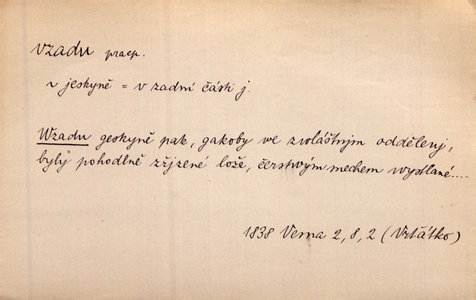 vzadu praep.
v jeskyně = v zadní části j.
Wzadu geskyně pak, gakoby we zwláštnjm oddělenj,
byly pohodlně zřjzené lože, čerstwým mechem wystlané....
1838 Vesna 2, 8, 2 (Vrťátko)